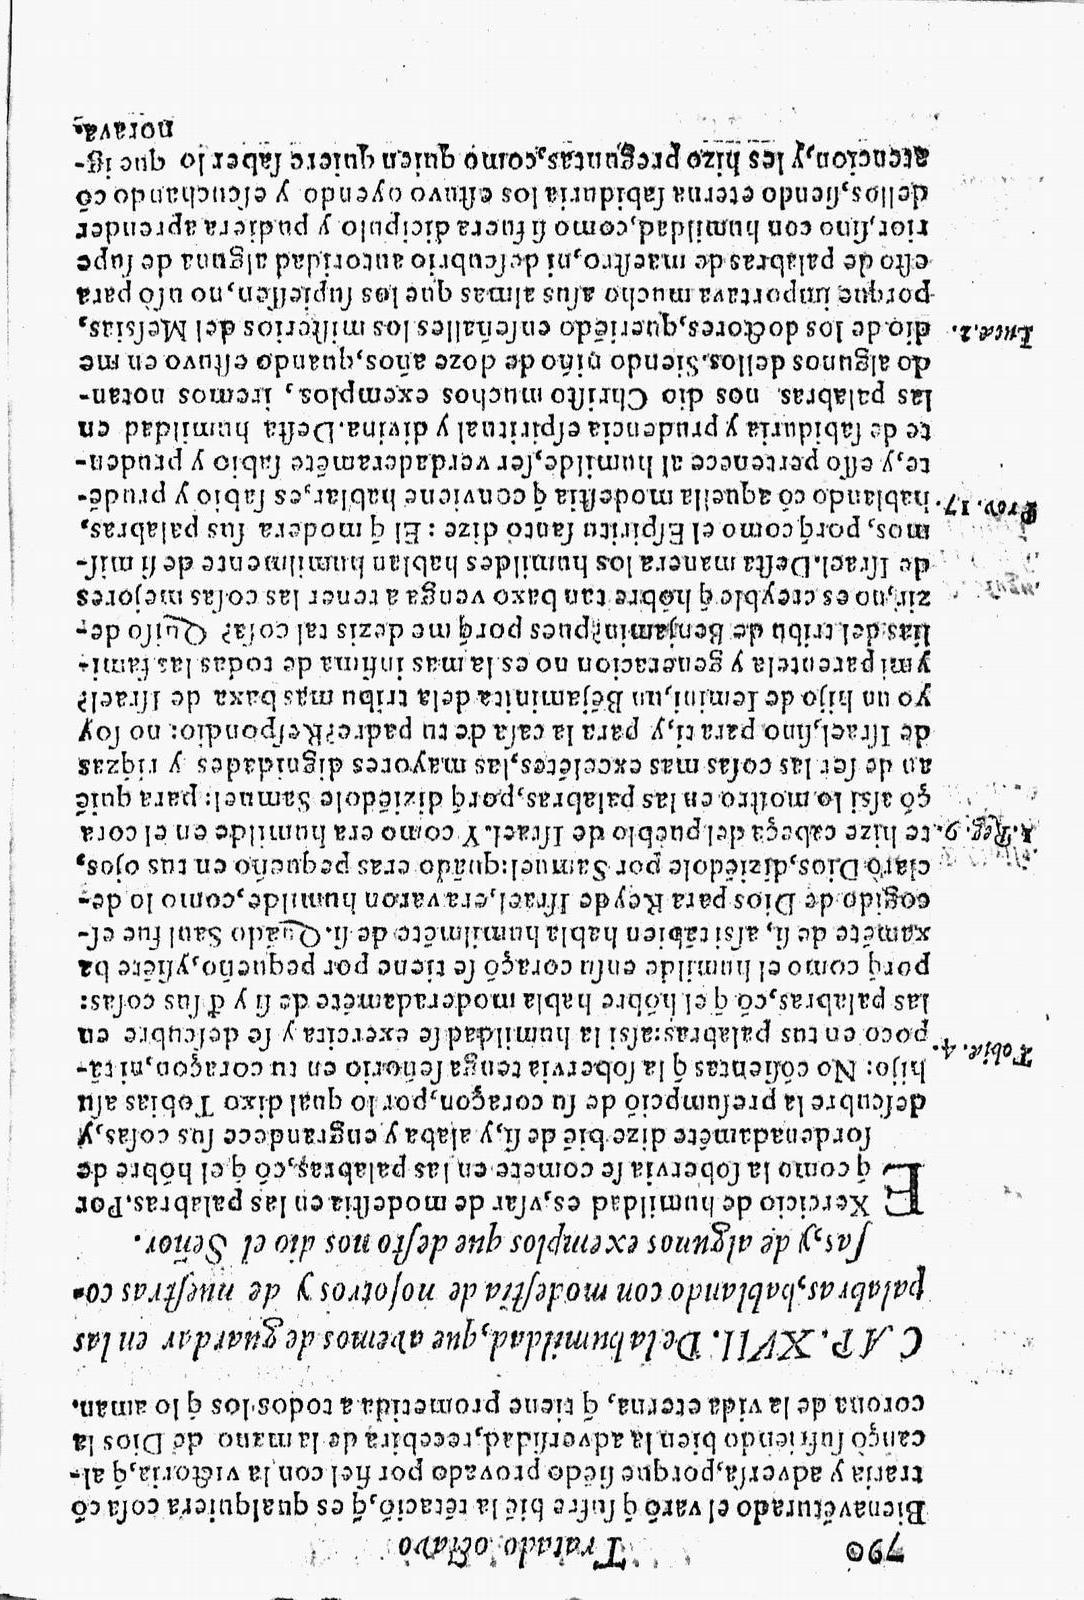 790
Tratado octavo
Bienavēturado el varō q̄ sufre biē la tētaciō, q̄ es qualquiera cosa cō
traria y adversa, porque siēdo provado por fiel con la victoria, q̄ al-
cançō sufriendo bien la adversidad, recebirá de la mano de Dios la
corona de la vida eterna, q̄ tiene prometida a todos los q̄ lo aman.
CAP. XVII. De la humildad, que avemos de guardar en las
palabras, hablando con modestia de nosotros y de nuestras co-
sas, y de algunos exemplos que desto nos dio el Señor.
EXercicio de humildad es, vsar de modestia en las palabras. Por
q̄ como la sobervia se comete en las palabras, cō q̄ el hōbre de
sordenadamēte dize biē de si, y alaba y engrandece sus cosas, y
descubre la presumpciō de su coraçon, por lo qual dixo Tobias asu
hijo: No cōsientas q̄ la sobervia tenga señorio en tu coraçon, ni tā-
poco en tus palabras: assi la humildad se exercita y se descubre en
Tobiæ. 4.
las palabras, cō q̄ el hōbre habla moderadamēte de si y d̄ sus cosas:
porq̄ como el humilde en su coraçō se tiene por pequeño, y siēte ba
xamēte de si, assi tābien habla humilmēte de si. Quādo Saul fue es-
cogido de Dios para Rey de Israel, era varon humilde, como lo de-
claró Dios, diziēdole por Samuel: quādo eras pequeño en tus ojos,
te hize cabeça del pueblo de Israel. Y como era humilde en el cora
1. Reg. 9.
çō assi lo mostro en las palabras, porq̄ diziēdole Samuel: para quiē
an de ser las cosas mas excelētes, las mayores dignidades y riq̄zas
de Israel, sino para ti, y para la casa de tu padre? Respondio: no soy
yo un hijo de Iemini, un Bējaminita dela tribu mas baxa de Israel?
y mi parentela y generacion no es la mas infima de todas las fami-
lias del tribu de Benjamin? pues porq̄ me dezis tal cosa? Quiso de-
zir, no es creyble q̄ hōbre tan baxo venga a tener las cosas mejores
de Israel. Desta manera los humildes hablan humilmente de si mis-
mos, porq̄ como el Espiritu santo dize: El q̄ modera sus palabras,
hablando cō aquella modestia q̄ conviene hablar, es sabio y prudē-
Prov. 17.
te, y esto pertenece al humilde, ser verdaderamēte sabio y pruden-
te de sabiduria y prudencia espiritual y divina. Desta humildad en
las palabras nos dio Christo muchos exemplos, iremos notan-
do algunos dellos. Siendo niño de doze años, quando estuvo en me
dio de los doctores, queriēdo enseñalles los misterios del Messias,
Lucæ. 2.
porque importava mucho asus almas que los supiessen, no usó para
esto de palabras de maestro, ni descubrio autoridad alguna de supe
rior, sino con humildad, como si fuera dicipulo y pudiera aprender
dellos, siendo eterna sabiduria los estuvo oyendo y escuchando cō
atencion, y les hizo preguntas, como quien quiere saber lo que ig-
norava.